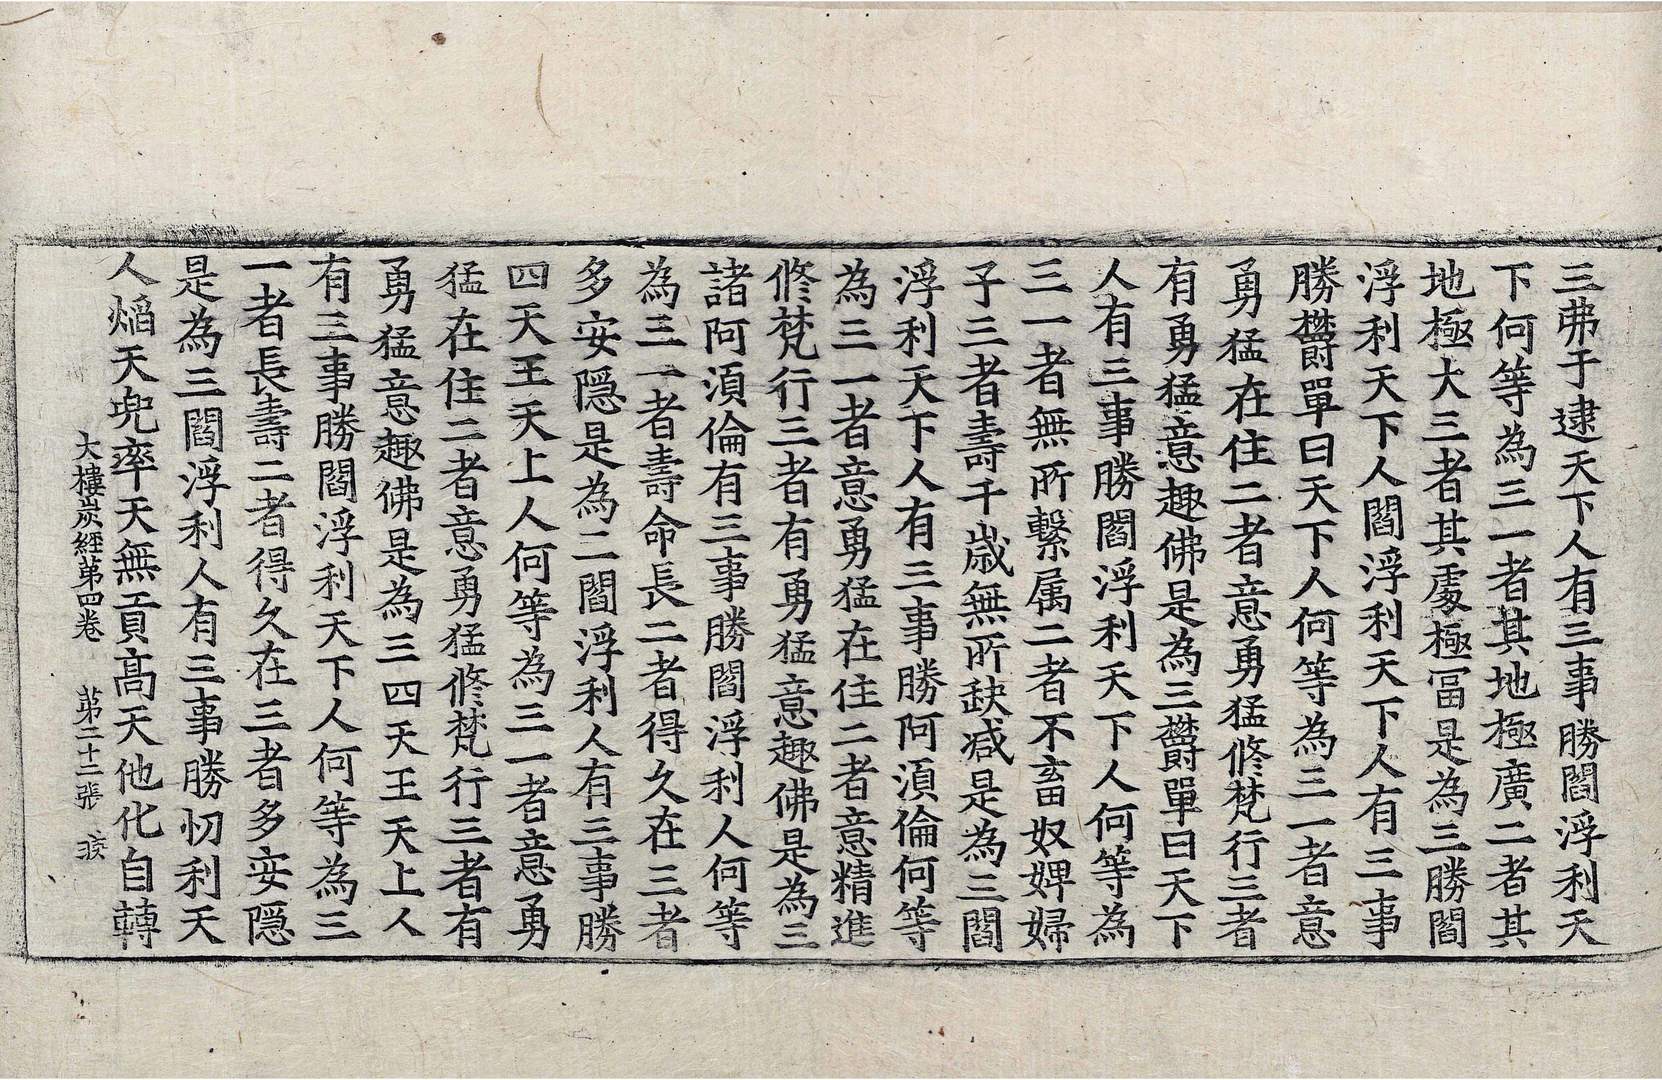 三弗于逮天下人有三事勝閻浮利天
下何等為三一者其地極廣二者其
地極大三者其處極冨是為三勝閻
浮利天下人閻浮利天下人有三事
勝欝單曰天下人何等為三一者意
勇猛在住二者意勇猛修梵行三者
有勇猛意趣佛是為三欝單曰天下
人有三事勝閻浮利天下人何等為
三一者無所繫属二者不畜奴婢婦
子三者壽千歲無所缺减是為三閻
浮利天下人有三事勝阿湏倫何等
為三一者意勇猛在住二者意精進
修梵行三者有勇猛意趣佛是為三
諸阿湏倫有三事勝閻浮利人何等
為三一者壽命長二者得久在三者
多安隱是為二閻浮利人有三事勝
四天王天上人何等為三一者意勇
猛在住二者意勇猛修梵行三者有
勇猛意趣佛是為三四天王天上人
有三事勝閻浮利天下人何等為三
一者長壽二者得久在三者多安隱
是為三閻浮利人有三事勝忉利天
人熖天兜率天無貢高天他化自轉
大樓炭經第四卷 第二十二張